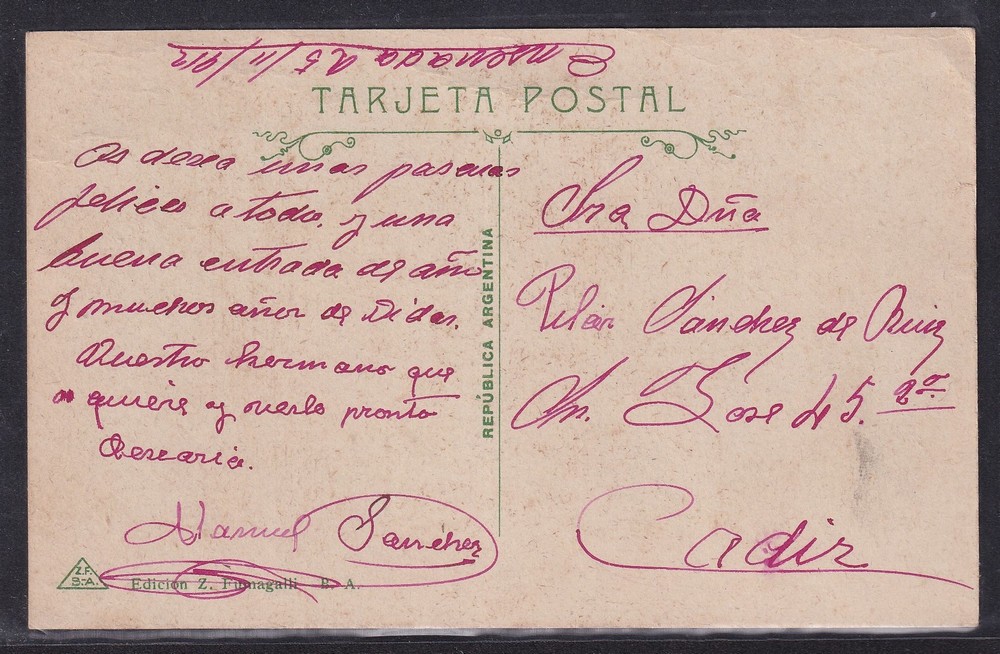 Ensenada 25/11/912
TARJETA POSTAL
Os desea unas pascuas
felices a todos, y una
buena entrada de año
y muchos años de vidas.
Vuestro hermano que
os quiere y verlos pronto
desearia.
Manuel Sanchez
REPÚBLICA ARGENTINA
Sra Dña
Pilar Sánchez de Ruiz
Sn. José 45. 2º.
Cadiz
Z.F.
B.-A.
Edicion Z. Fumagalli B. A.